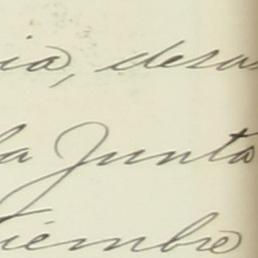 ia, desa
la Junta
tiembre